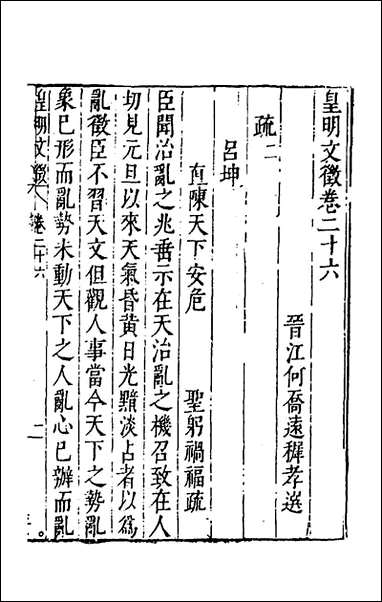 皇明文徵卷二十六
晉江何喬遠穉孝選
疏二
呂坤
直陳天下安危　聖躬禍福疏
臣聞治亂之兆垂示在天治亂之機召致在人
切見元旦以來天氣昏黃日光黯淡占者以爲
亂徵臣不習天文但觀人事當今天下之勢亂
象已形而亂勢未動天下之人亂心已辦而亂
皇明文徵　卷二十六　二